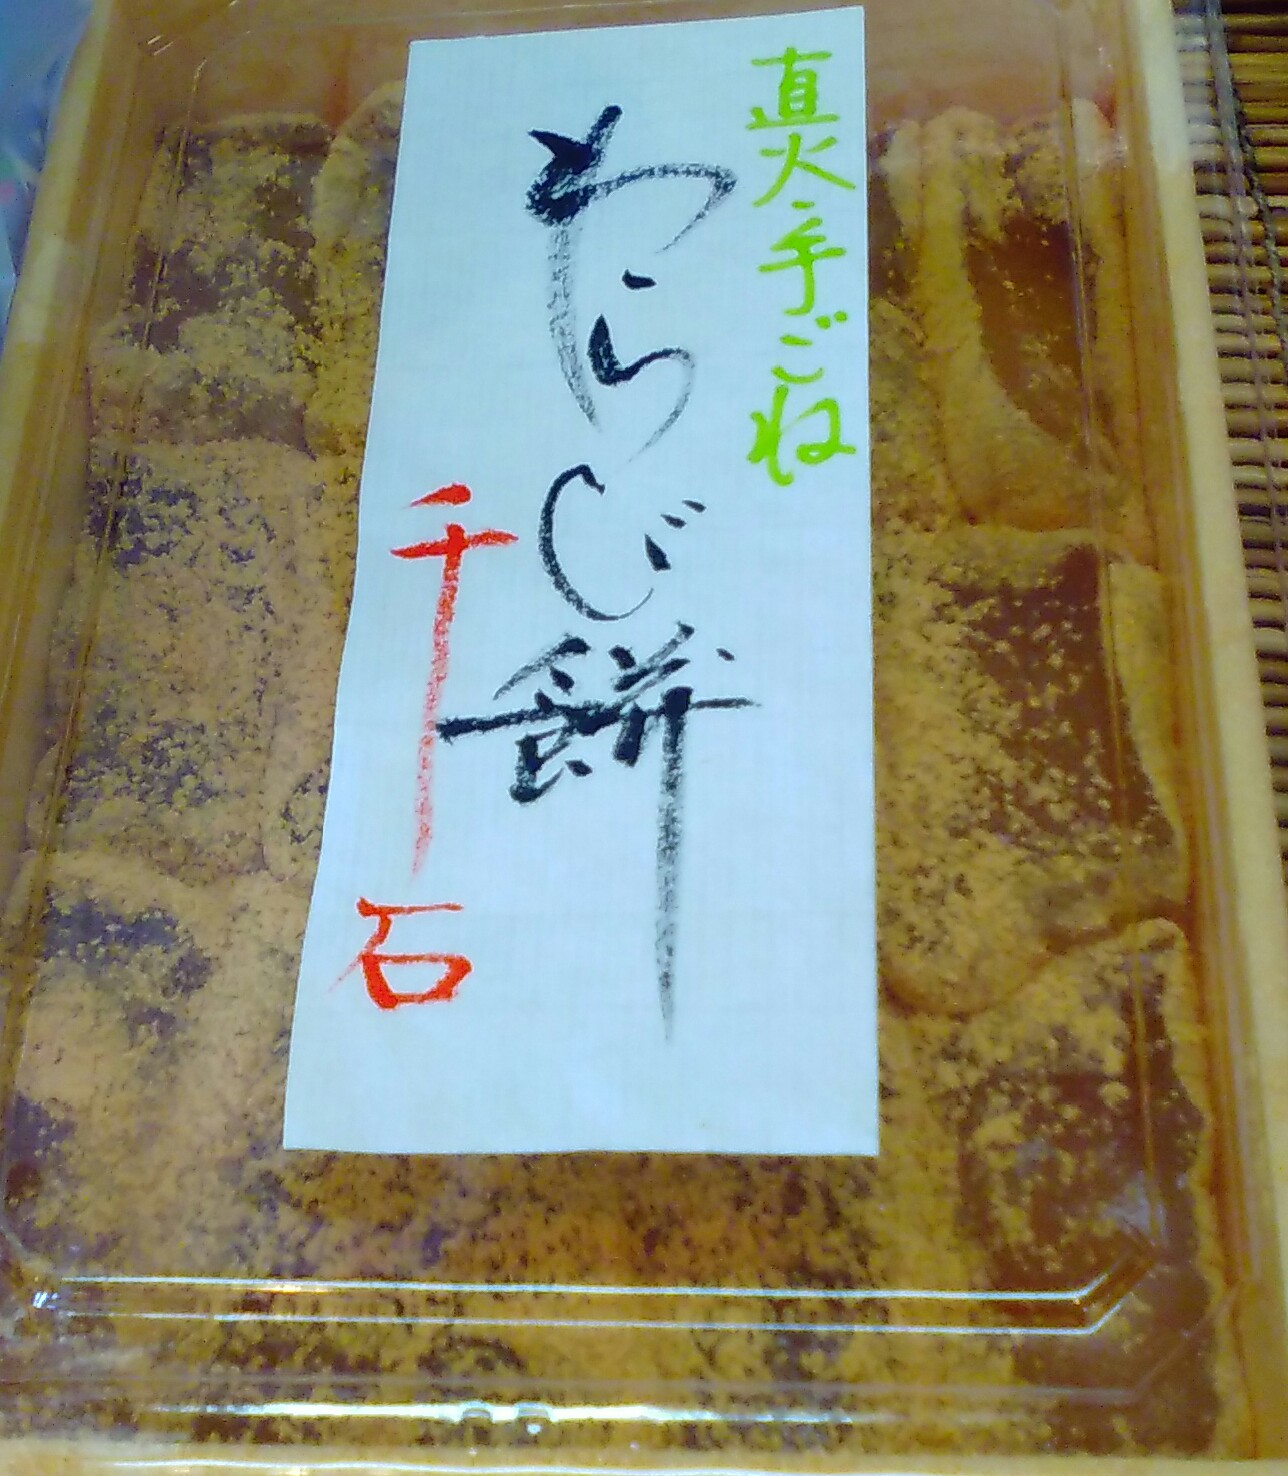 直火手ごね
わらび餅
千石